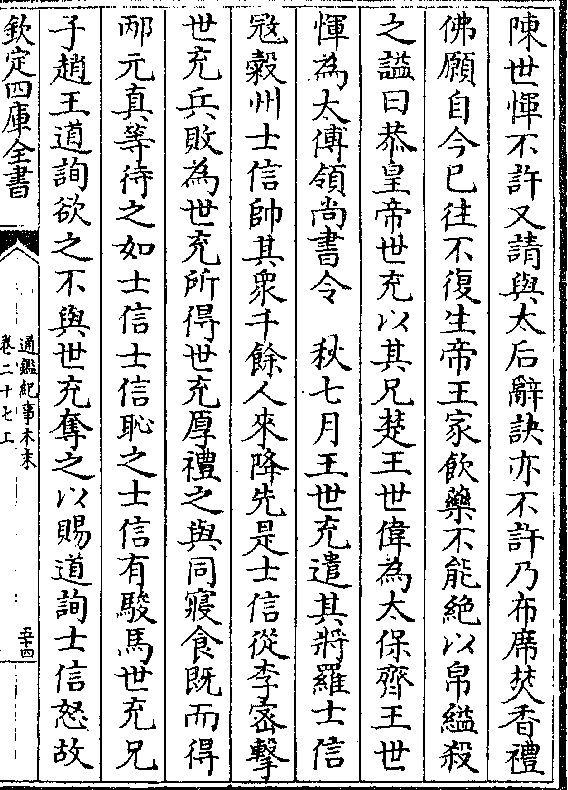 陳世惲不許又請與太后辭訣亦不許乃布席焚香禮
佛願自今已往不復生帝王家飲藥不能絶以帛縊殺
之諡曰恭皇帝世充以其兄楚王世偉為太保齊王世
惲為太傅領尚書令　秋七月王世充遣其將羅士信
宼穀州士信帥其衆千餘人來降先是士信從李宻擊
世充兵敗為世充所得世充厚禮之與同寢食既而得
邴元真等待之如士信士信恥之士信有駿馬世充兄
子趙王道詢欲之不與世充奪之以賜道詢士信怒故
欽定四庫全書
通鑑紀事本末
卷二十七上
五十四